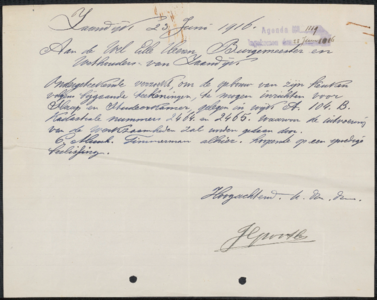 Zaandijk 23 Juni 1916.
Agenda No. 1119
Aan de Wel Edele Heeren Burgemeester en
Wethouders van Zaandijk
Ondergeteekende verzoekt, om de gebouw van zijn keuken
volgens bijgaande teekening, te mogen inrichten voor
Slaap en Studeerkamer, gelegen in wijk A. 104. B.
Kadastrale nummers 2464 en 2465. waarvan de uitvoering
van de werkzaamheden zal worden gedaan door.
Timmerman alhier. hopende op een spoedige
Hoogachtend. U. Dw. Dn.